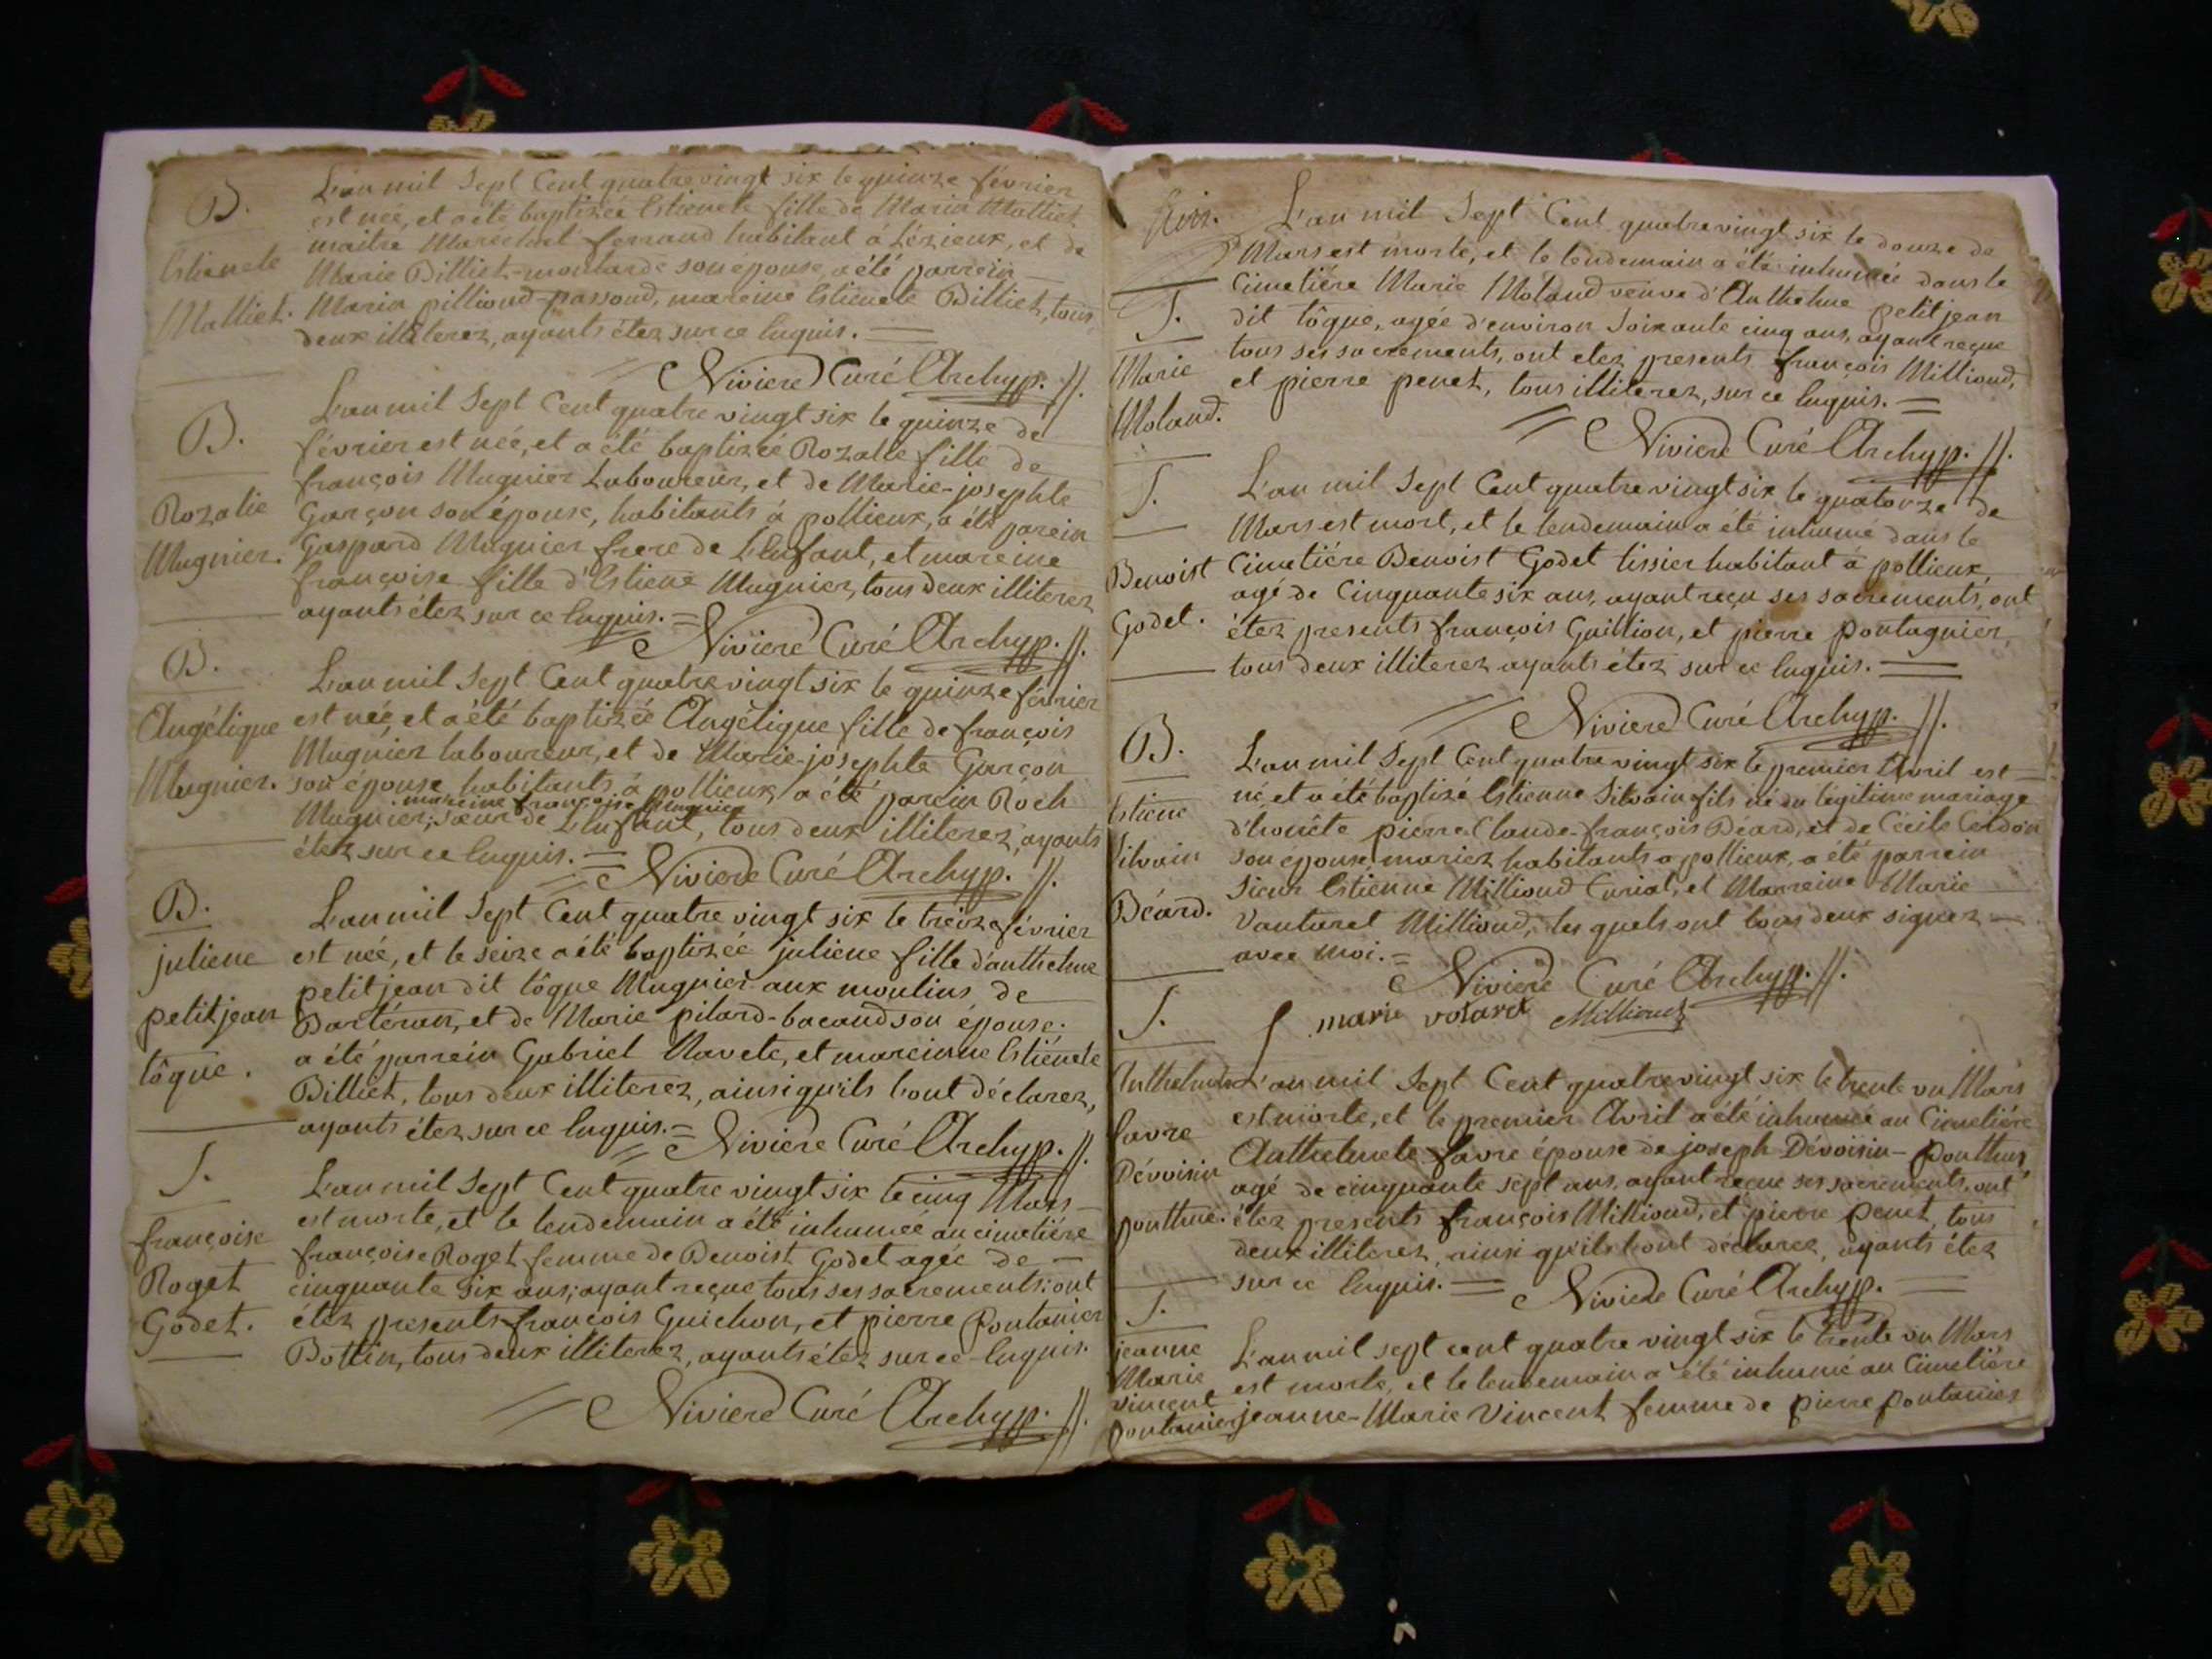 B.
L'an mil Sept Cent quatre vingt six le quinze février
est née, et a été baptizée Estienete fille de Marin Malliet
maitre Maréchal ferrand habitant à Lézieux, et de
Marie Billiet-moutarde son épouse, a été parrein
Marin pillioud-passoud, mareine Estienete Billiet, tous
deux illiterez, ayants étez sur ce enquis.
Estienete
Malliet.
Niviere Curé Archyp.
B.
Rozalie
Mugnier.
L'an mil Sept Cent quatre vingt six le quinze de
février est née, et a été baptizée Rozalie fille de
françois Mugnier Laboureur, et de Marie-josephte
Garçon son épouse, habitants à pollieux, a été parein
Gaspard Mugnier frere de L'Enfant, et mareine
françoise fille d'Estiene Mugnier, tous deux illiterez
ayants étez sur ce enquis. =
Niviere Curé Archyp.
B.
Angélique
Mugnier.
L'an mil Sept Cent quatre vingt six le quinze février
est née, et a été baptizée Angélique fille de françois
Mugnier laboureur, et de Marie-josephte Garçon
son épouse, habitants à pollieux, a été parein Roch
mareine françoise Mugnier
Mugnier, sœur de L'Enfant, tous deux illiterez, ayants
étez sur ce enquis. =
Niviere Curé Archyp.
B.
juliene
petitjean
tôque.
L'an mil Sept Cent quatre vingt six le treize février
est née, et le seize a été baptizée juliene fille d'anthelme
petitjean dit tôque Mugnier aux moulins de
Bartéran, et de Marie pilard-bacaud son épouse.
a été parrein Gabriel Navete, et mareinne Estienete
Billiet, tous deux illiterez, ainsi qu'ils l'ont déclarez,
ayants étez sur ce enquis. =
Niviere Curé Archyp.
S.
françoise
Roget
Godet.
L'an mil Sept Cent quatre vingt six le cinq Mars
est morte, et le lendemain a été inhumée au cimetière
françoise Roget femme de Benoist Godet agée de
cinquante six ans, ayant reçue tous ses sacrements: ont
étez presents françois Guichon, et pierre Pontanier
Bottin, tous deux illiterez, ayants étez sur ce enquis.
Niviere Curé Archyp.
S.
Marie
Moland.
L'an mil Sept Cent quatre vingt six le douze de
Mars est morte, et le lendemain a été inhumée dans le
Cimetière Marie Moland veuve d'Anthelme petitjean
dit tôque, agée d'environ soixante cinq ans, ayant reçue
tous ses sacrements, ont etez presents françois Millioud,
et pierre penet, tous illiterez, sur ce enquis. =
Niviere Curé Archyp.
S.
Benoist
Godet.
L'an mil Sept Cent quatre vingt six le quatorze de
Mars est mort, et le lendemain a été inhumé dans le
Cimetière Benoist Godet tissier habitant à pollieux
agé de Cinquante six ans, ayant reçu ses sacrements, ont
étez presents françois Guillion, et pierre Pontagnier,
tous deux illiterez ayants étez sur ce enquis. =
Niviere Curé Archyp.
B.
Estiene
Silvain
Béard.
L'an mil Sept Cent quatre vingt six le premier Avril est
né, et a été baptizé Estienne Silvain fils né du légitime mariage
d'honête pierre Claude-françois Béard, et de Cécile Cerdon
son épouse mariez habitants a pollieux, a été parrein
Sieur Estienne Millioud Curial, et Marreine Marie
Vautaret Millioud, les quels ont tous deux signez
avec moi. =
Niviere Curé Archyp.
marie votaret Millioud
S.
favre
Dévoisin
ponthus.
L'an mil Sept Cent quatre vingt six le trente un Mars
est morte, et le premier Avril a été inhumée au Cimetière
Anthelmete favre épouse de joseph Dévoisin-Ponthus
agé de cinquante sept ans, ayant reçue ses sacrements, ont
étez presents françois Millioud, et pierre penet, tous
deux illiterez, ainsi qu'ils l'ont déclarez, ayants étez
sur ce enquis. =
Niviere Curé Archyp.
S.
jeanne
Marie
vincent
pontanier
L'an mil sept cent quatre vingt six le trente un Mars
est morte, et le lendemain a été inhumé au Cimetière
jeanne-Marie Vincent femme de pierre pontanier